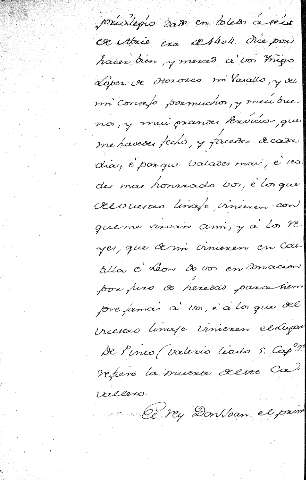 privilegio dado en toledo à seis
de Abril era de 1404. dice por
hacer bien, y merced à vos Iñigo
López de Horozco mi Vasallo, y de
mi Consejo por muchos, y mui bue
nos, y mui grandes servicios, que
me havedes fecho, y facedes de cada
dia, è porque valades mas, è sea
des mas honrrado vos, è los que
de vuestro linaje vinieren con
que me sirvan à mi, y à los Re
yes, que de mi vinieren en Cas
tilla è Leon do vos en donacion
por juro de heredad para siem
pre jamas à vos, è à los que del
vuestro linaje vinieren el Lugar
De Pinto (Valerio
refiere la muerte de este Ca
vallero.
El Rey Don Juan el prim